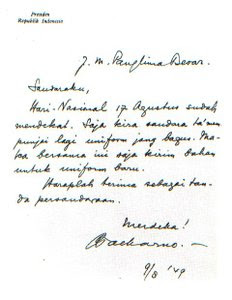 Presiden
Republik Indonesia
J. M. Panglima Besar.
Saudaraku,
Hari-Nasional 17 Agustus sudah
mendekat. Saja kira saudara ta' mem
punjai lagi uniform jang bagus. Ma-
ka bersama ini saja kirim bahan
untuk uniform baru.
Haraplah terima sebagai tan-
da persaudaraan.
Merdeka!
Soekarno.—
9/8 '49